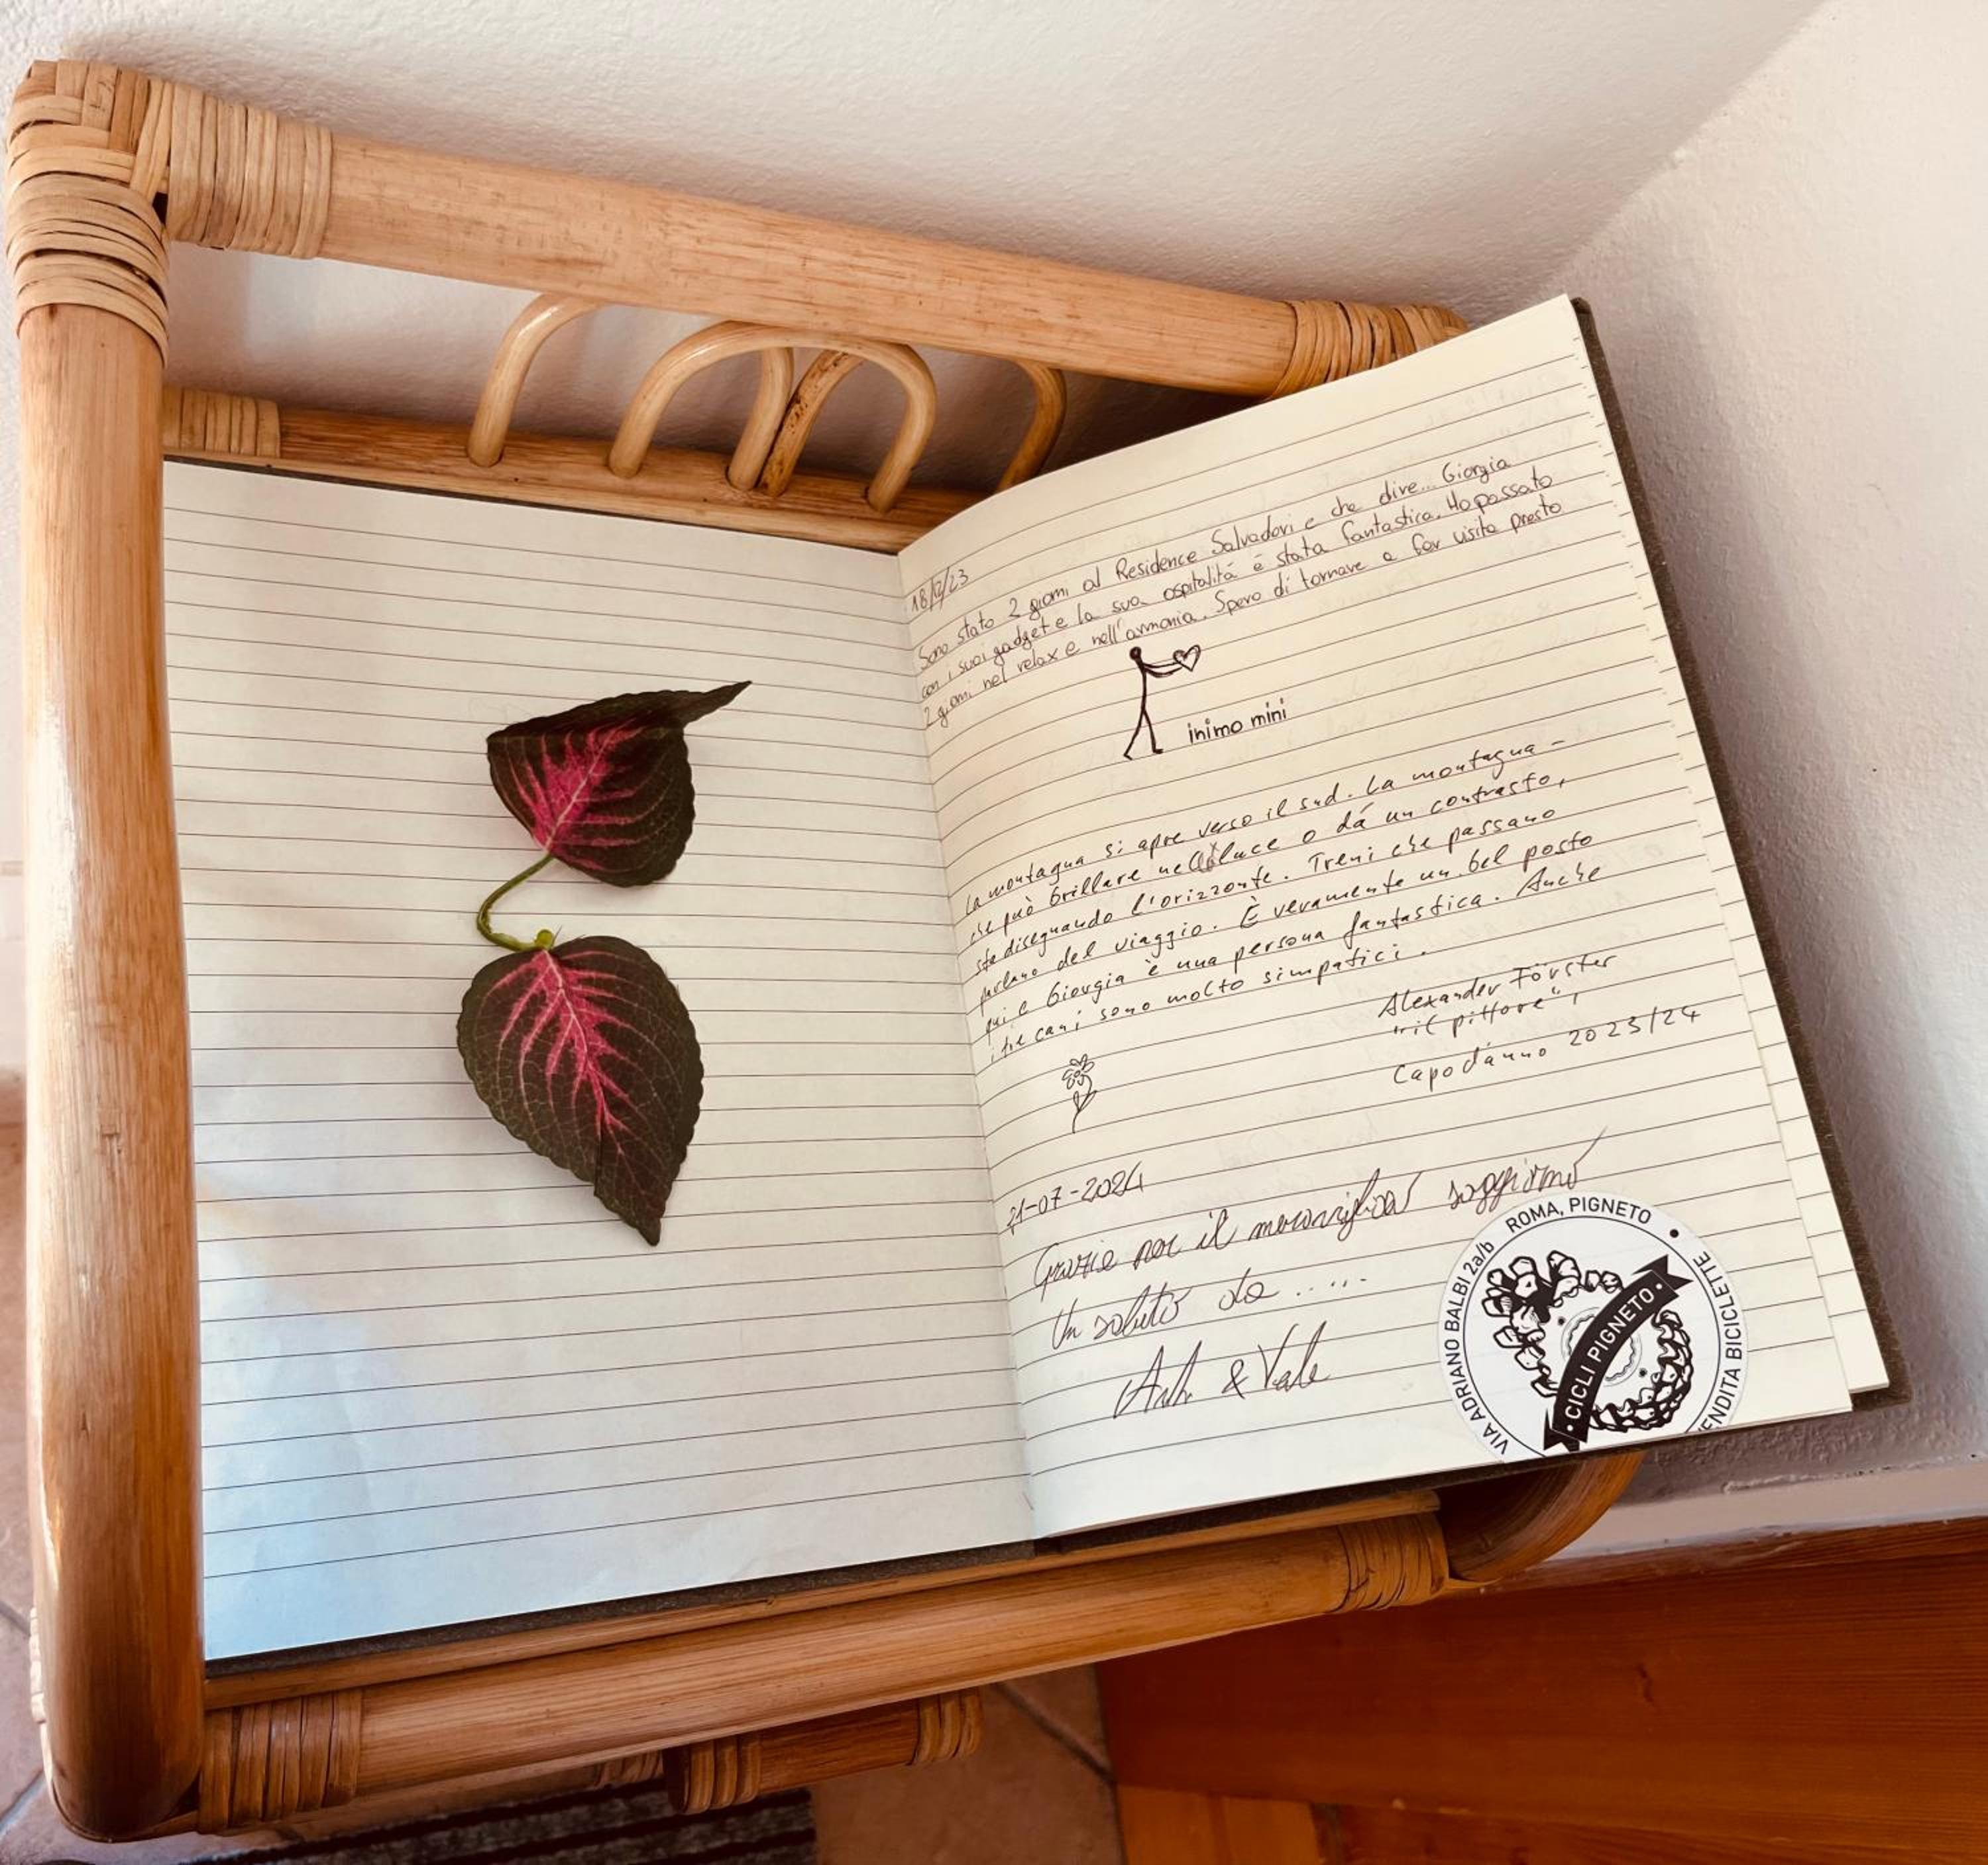 18/12/23
Sono stato 2 giorni al Residence Salvadori e che dire... Giorgia
con i suoi gadget e la sua ospitalitá é stata fantastica. Ho passato
2 giorni nel relax e nell'armonia. Spero di tornare a far visita presto
inimo mini
La montagna si apre verso il sud. La montagna -
che può brillare nella luce o dá un contrasto,
sta disegnando l'orizzonte. Treni che passano
parlano del viaggio. È veramente un bel posto
qui e Giorgia è una persona fantastica. Anche
i tre cani sono molto simpatici.
Alexander Förster
"il pittore",
Capodánno 2023/24
21-07-2024
Grazie per il meraviglioso soggiorno
Un saluto da .....
& Vale
VIA ADRIANO BALBI 2a/b • ROMA, PIGNETO •
CICLI PIGNETO
ENDITA BICICLETTE